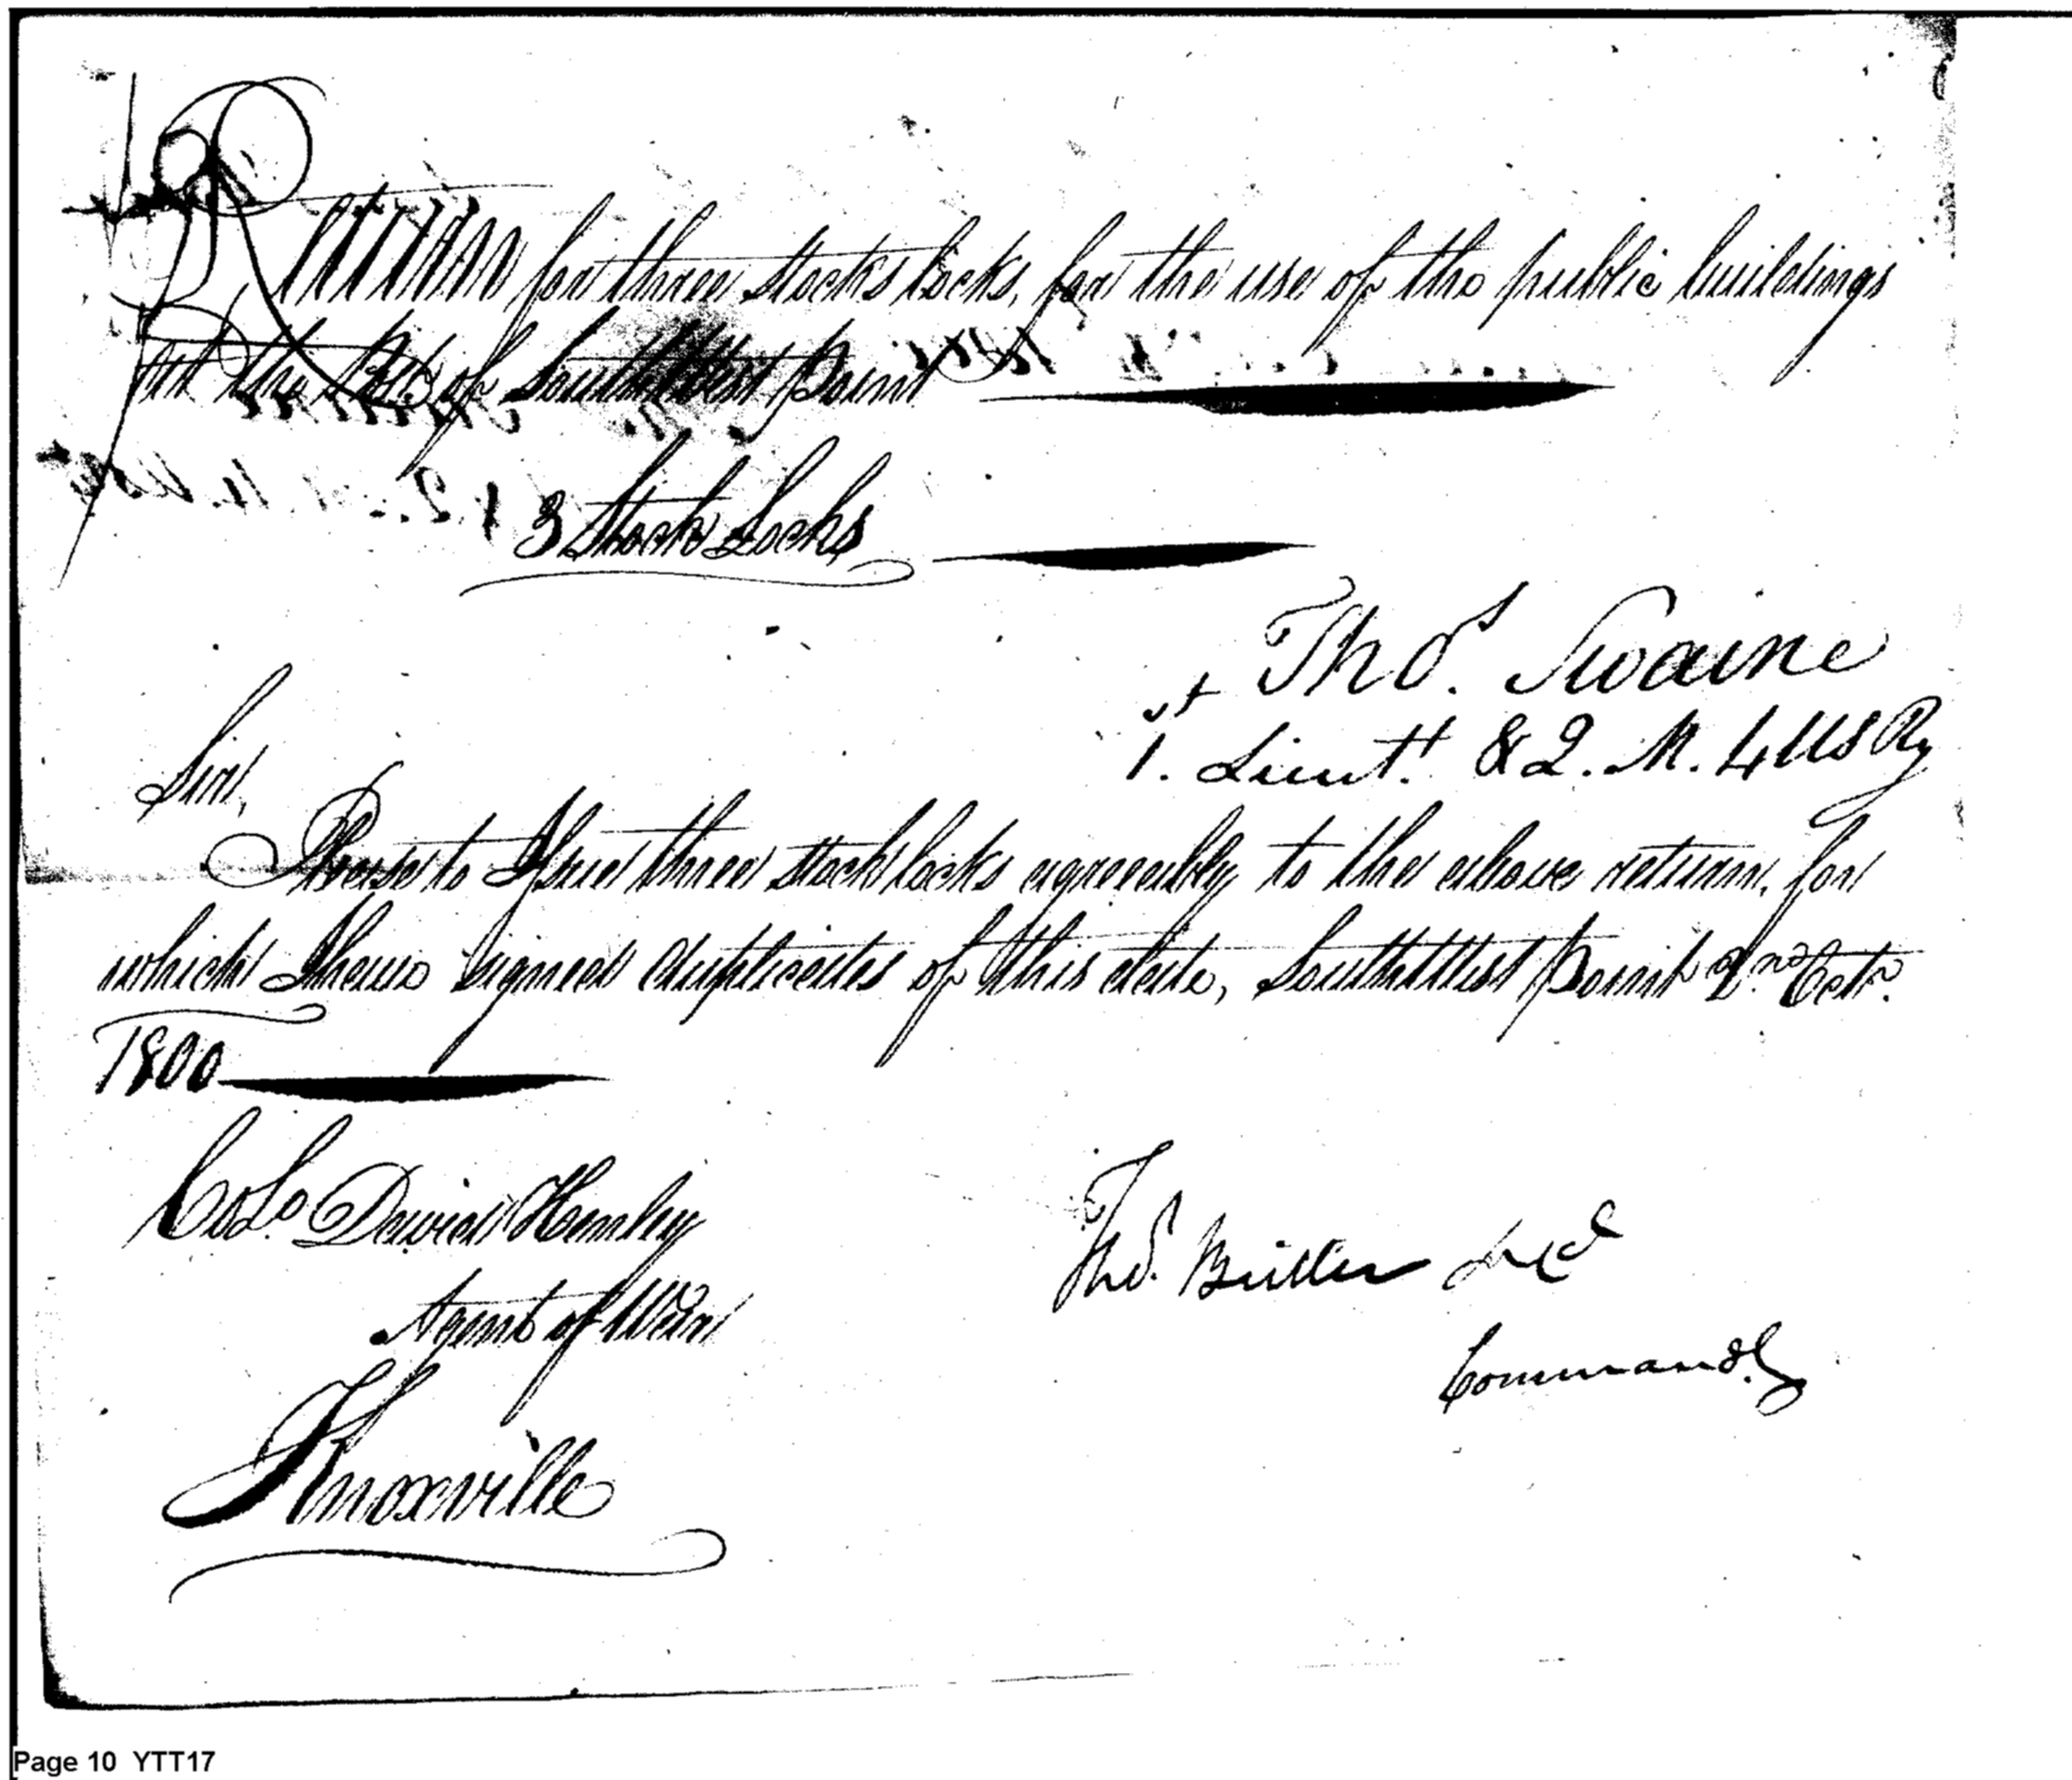 Return for three stocks locks, for the use of the public buildings
at the Post of South West Point
3 Stock Locks
Thos. Swaine
1st. Lieut. & Q. M. 4 US Rg
Sir,
Please to Issue three stock locks agreeably to the above return, for
which I have signed duplicates of this date, South West Point 2nd Octr.
1800
Colo. David Henley
Agent of War
Knoxville
Thos. Butler
Command.g
Page 10 YTT17